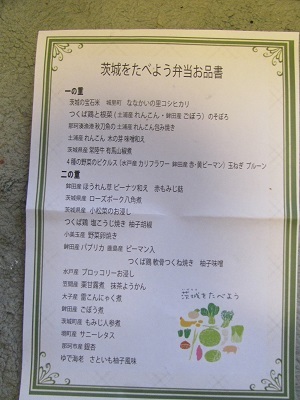 茨城をたべよう弁当お品書
一の重
茨城の宝石米 城里町 ななかいの里コシヒカリ
つくば鶏と根菜(土浦産 れんこん・鉾田産 ごぼう)のそぼろ
那珂湊漁産秋刀魚の土浦産 れんこん包み焼き
土浦産 れんこん 木の芽味噌和え
茨城県産 常陸牛 有馬山椒煮
4種の野菜のピクルス(水戸産 カリフラワー 鉾田産 赤・黄ピーマン)玉ねぎ プルーン
二の重
鉾田産 ほうれん草 ピーナツ和え 赤もみじ麩
茨城県産 ローズポーク八角煮
茨城県産 小松菜のお浸し
つくば鶏 塩こうじ焼き 柚子胡椒
小美玉産 野菜卵焼き
鉾田産 パプリカ 鹿島産 ピーマン入
つくば鶏 軟骨つくね焼き 柚子味噌
水戸産 ブロッコリーお浸し
笠間産 栗甘露煮 抹茶ようかん
大子産 雷こんにゃく煮
鉾田産 ごぼう煮
茨城町産 もみじ人参煮
境町産 サニーレタス
那珂市産 銀杏
ゆで海老 さといも柚子風味
茨城をたべよう